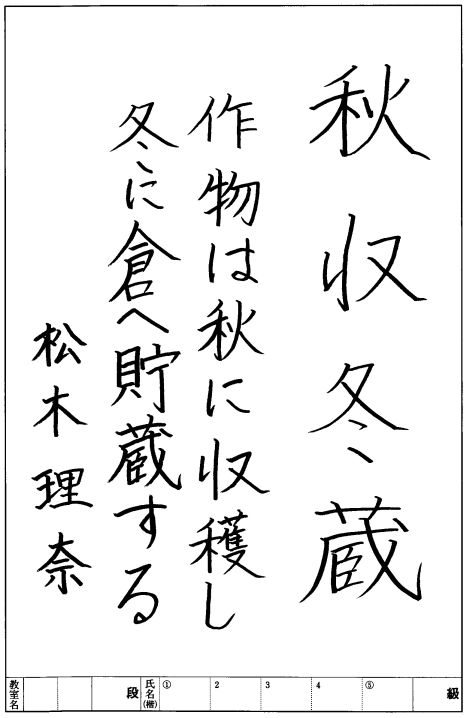 秋収冬蔵
作物は秋に収穫し
冬に倉へ貯蔵する
松木理奈
級 ⑤ 4 3 2 ① 氏名(楷) 段 教室名